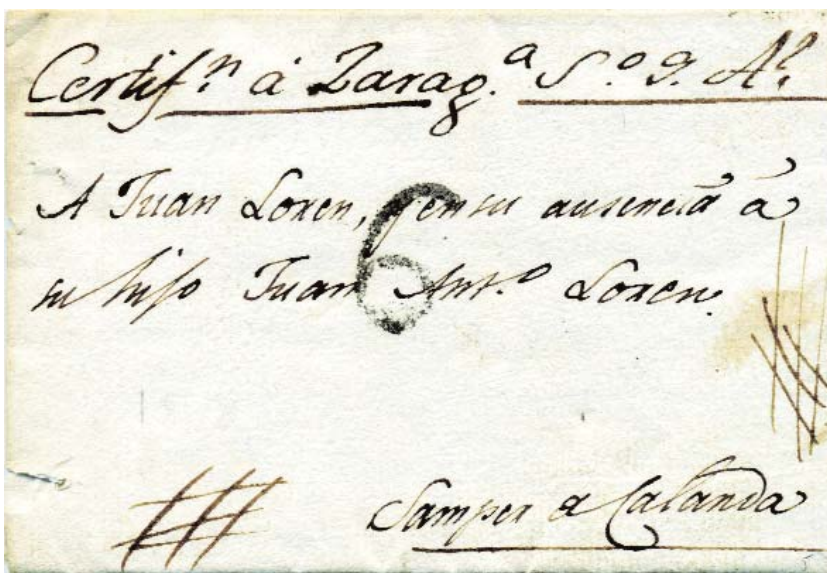 Certif.n á Zarag.a S.o g. A.l
A Juan Loren, y en su ausencia á
su hijo Juan Ant.o Loren.
6
Samper de Calanda